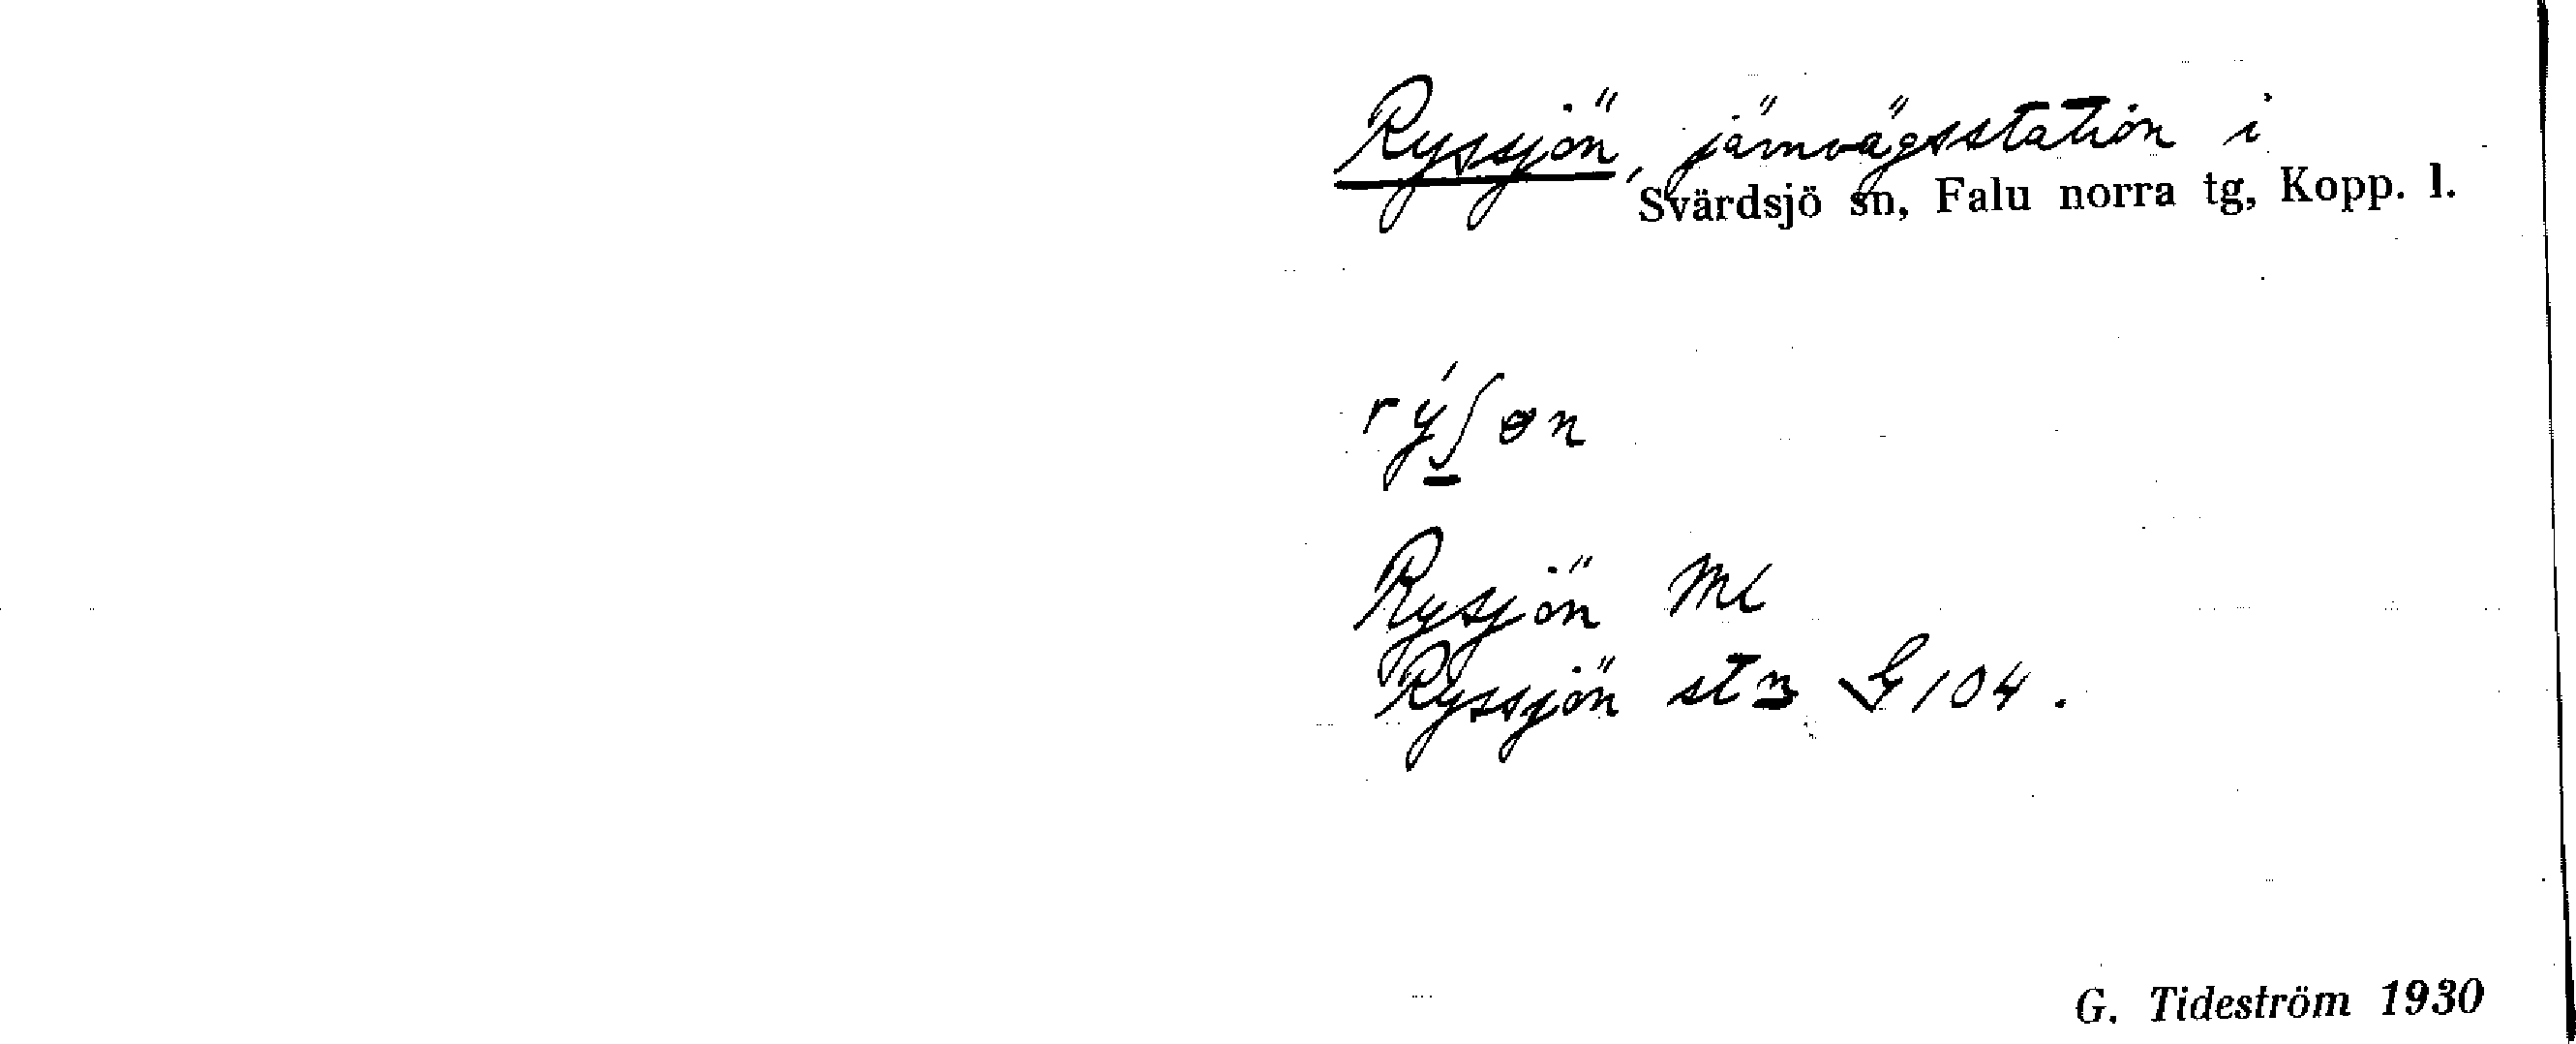 Ryssjön, järnvägsstation i
Svärdsjö sn, Falu norra tg, Kopp. l.
rýʃøn
Rysjön Ml
Ryssjön stn G 104.
G. Tideström 1930